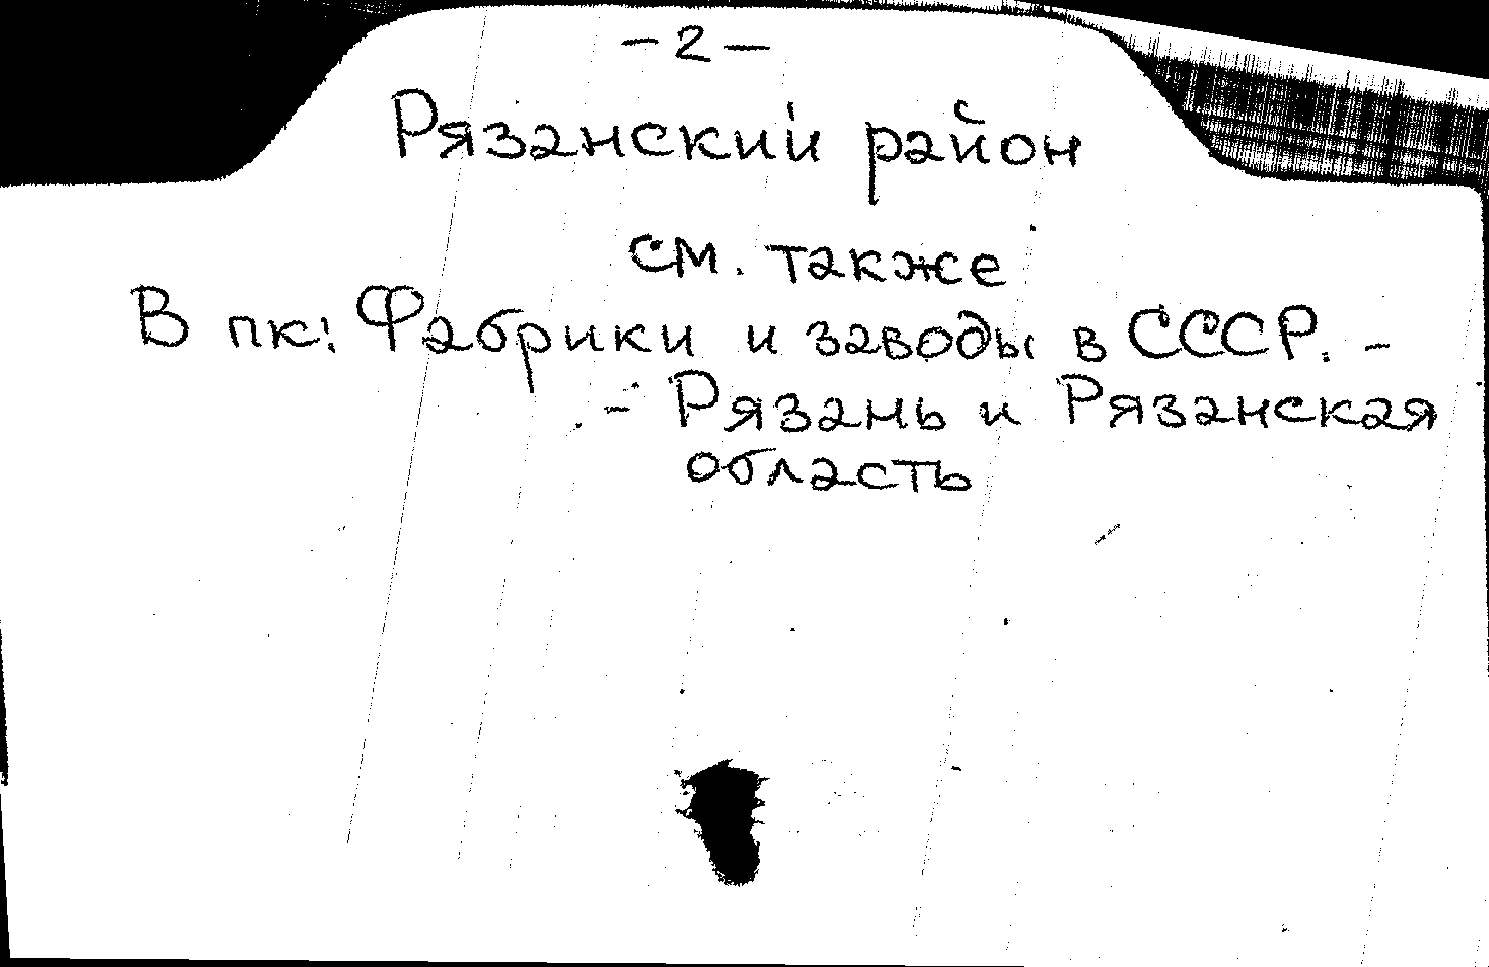 - 2 -
Рязанский район
см. также
В пк: Фабрики и заводы в СССР. -
- Рязань и Рязанская
область